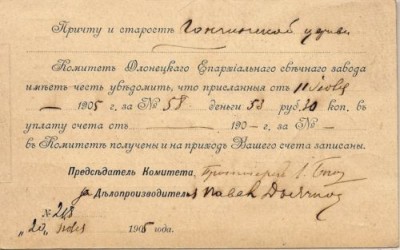 Причту и старостѣ
Комитетъ Олонецкаго Епархіальнаго свѣчного завода
имѣетъ честь увѣдомить, что присланныя отъ 11 Іюля
1905 г. за № 58 деньги 58 руб. 30 коп. въ
уплату счета отъ 190 г. за №
въ Комитетѣ получены и на приходъ Вашего счета записаны.
Предсѣдатель Комитета, Протоіерей
Дѣлопроизводитель Павелъ
№
"20" 1905 года.